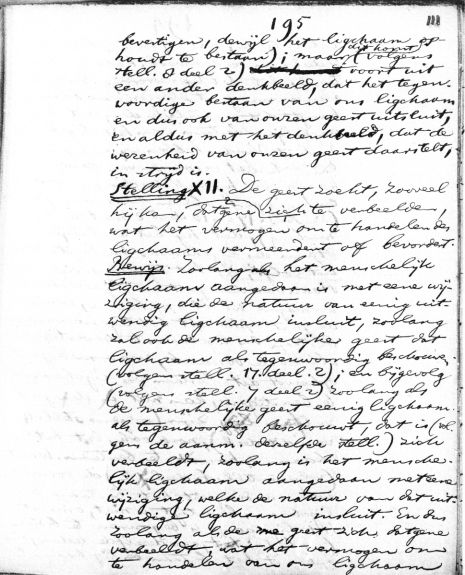 195
111
bevestigen, dewijl het ligchaam op
houdt te bestaan); maar (volgens
stell. 8 deel 2) dit komt voort uit
een ander denkbeeld, dat het tegen-
woordige bestaan van ons ligchaam
en dus ook van onzen geest uitsluit,
en aldus met het denkbeeld, dat de
wezenheid van onzen geest daarstelt,
in strijd is.
Stelling XII. De geest zoekt, zooveel
hij kan, datgene zich te verbeelden,
wat het vermogen om te handelen des
ligchaams vermeerdert of bevordert.
Bewijs. Zoolang als het menschelijk
ligchaam aangedaan is met eene wij
ziging, die de natuur van eenig uit-
wendig ligchaam insluit, zoolang
zal ook de menschelijke geest dat
ligchaam als tegenwoordig beschouwen
(volgens stell. 17. deel 2); en bijgevolg
(volgens stell. 7, deel 2) zoolang als
de menschelijke geest eenig ligchaam
als tegenwoordig beschouwt, dat is (vol-
gens de aanm. derzelfde stell.) zich
verbeeldt, zoolang is het mensche-
lijk ligchaam aangedaan met eene
wijziging, welke de natuur van dat uit-
wendig ligchaam insluit. En dus
zoolang als de geest zich datgene
verbeeldt, wat het vermogen om
te handelen van ons ligchaam